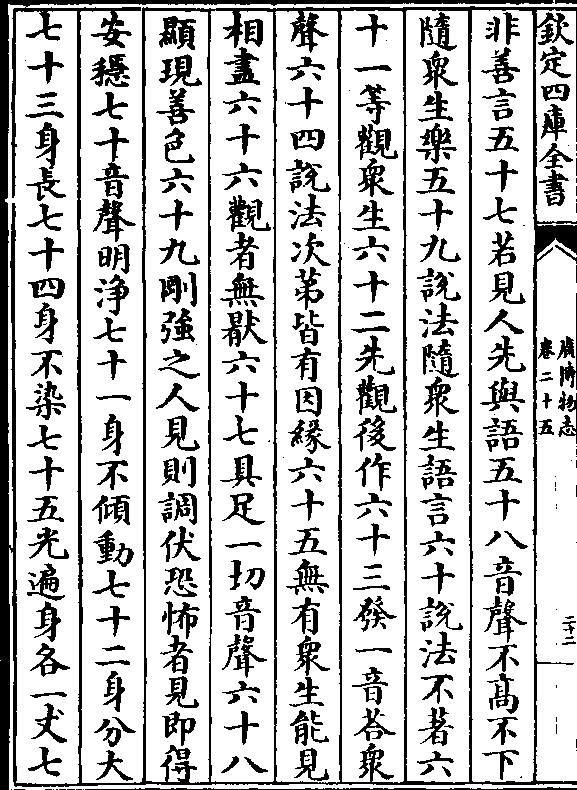 欽定四庫全書
廣博物志
卷二十五
二十二
非善言五十七若見人先與語五十八音聲不髙不下
隨衆生樂五十九說法隨衆生語言六十說法不著六
十一等觀衆生六十二先觀後作六十三發一音荅衆
聲六十四說法次第皆有因緣六十五無有衆生能見
相盡六十六觀者無厭六十七具足一切音聲六十八
顯現善色六十九剛強之人見則調伏恐怖者見即得
安穩七十音聲明淨七十一身不傾動七十二身分大
七十三身長七十四身不染七十五光遍身各一丈七